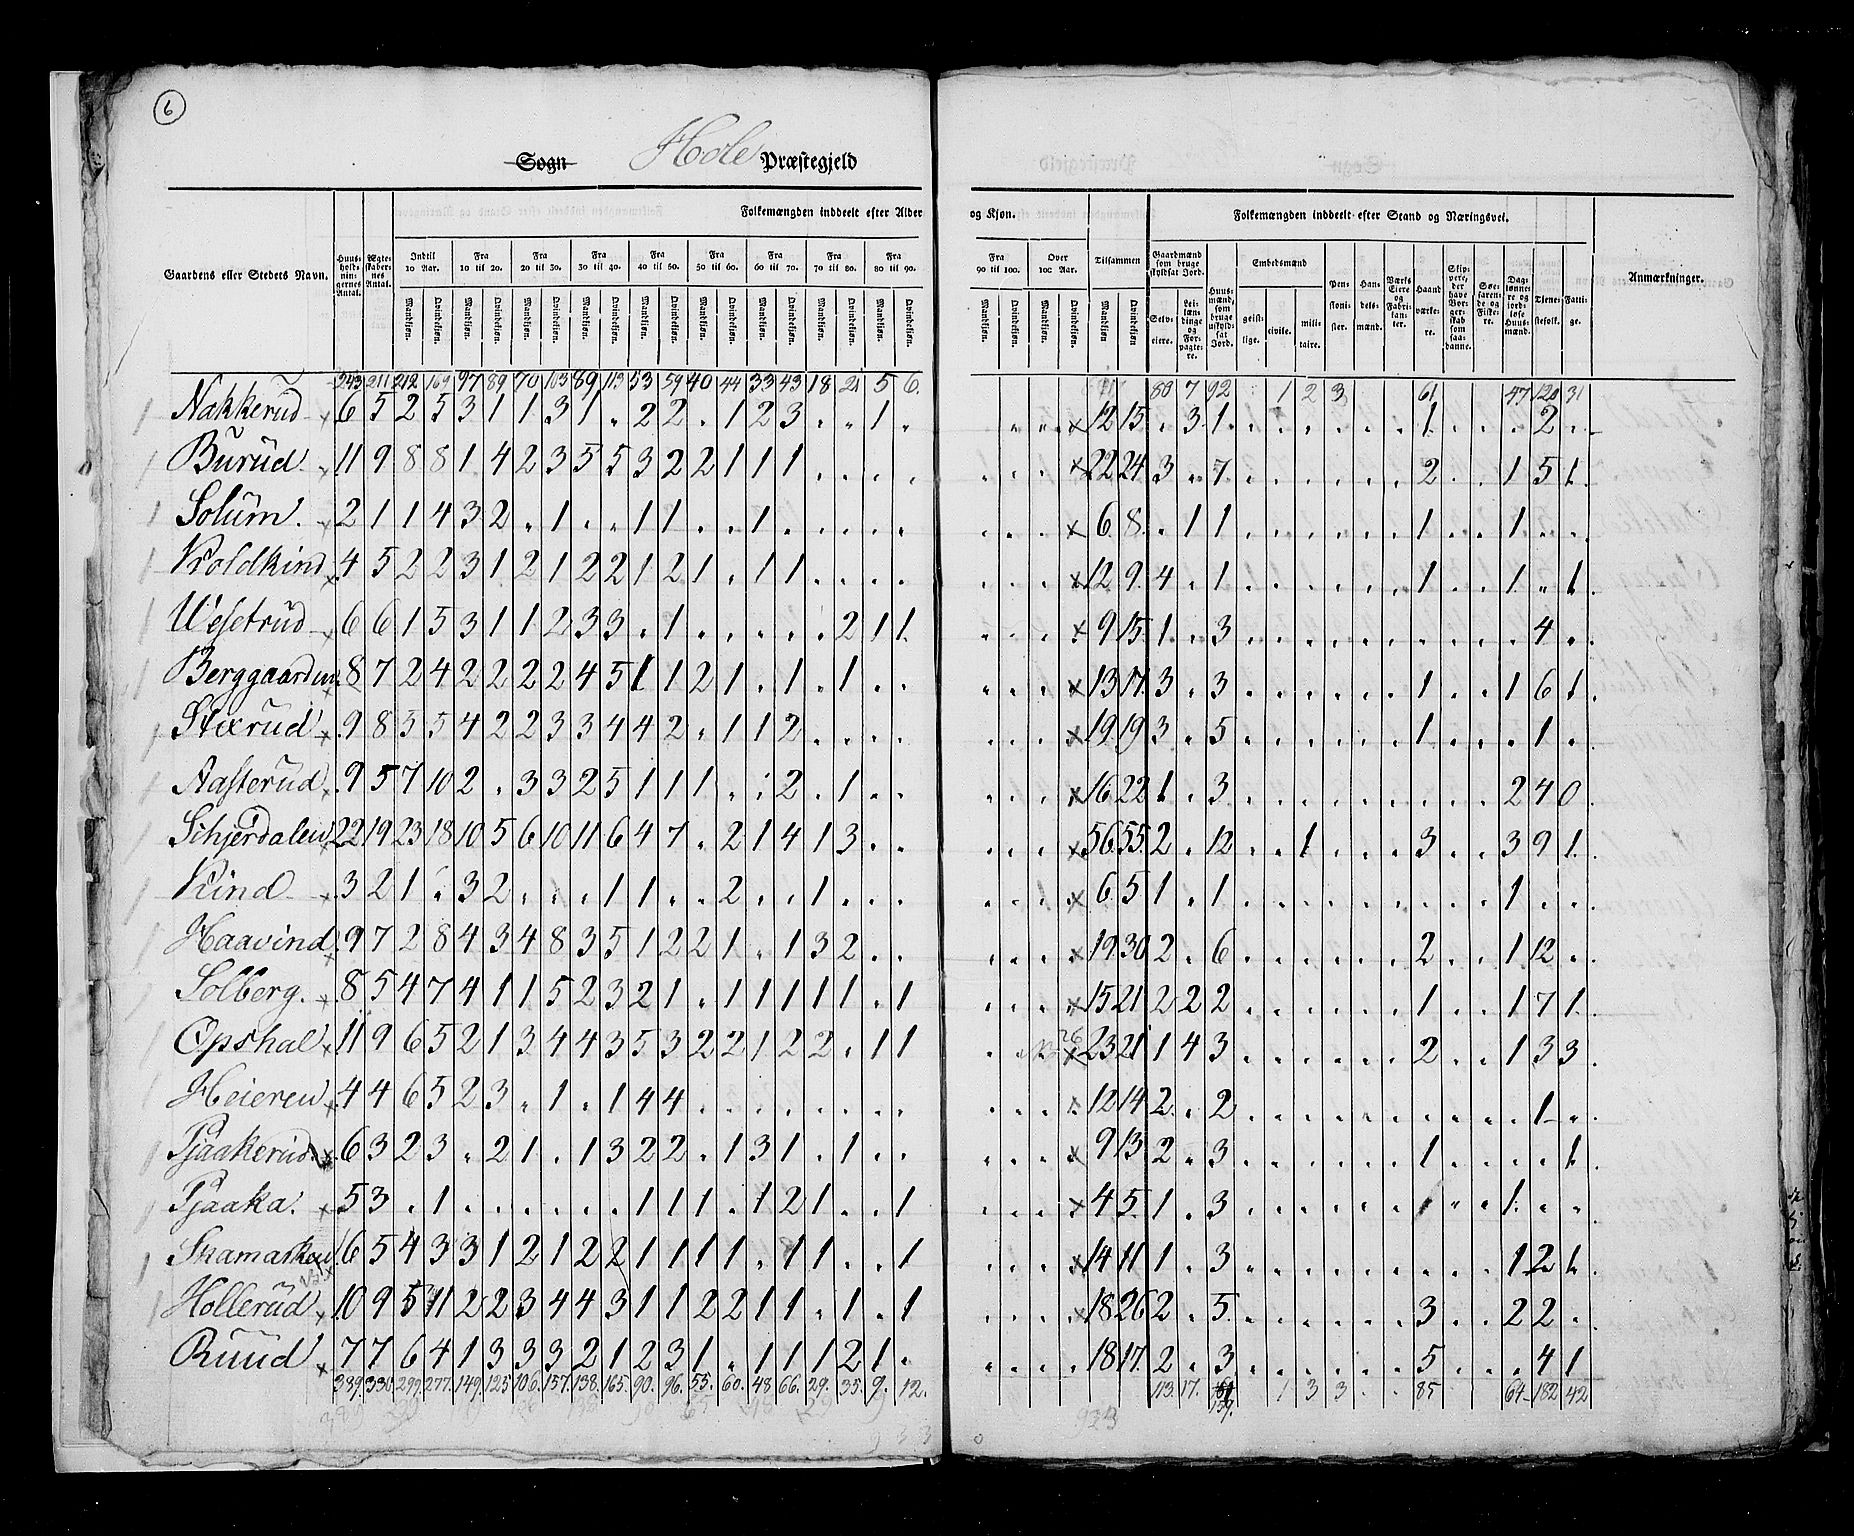 6
Sogn Hole Præstegjeld
Folkemængden inddeelt efter Alder og Kjøn. Folkemængden inddeelt efter Stand og Næringsvei.
Gaardens eller Stedets Navn. Huusholdningernes Antal. Ægteskabernes Antal. Indtil 10 Aar. Fra 10 til 20. Fra 20 til 30. Fra 30 til 40. Fra 40 til 50. Fra 50 til 60. Fra 60 til 70. Fra 70 til 80. Fra 80 til 90. Fra 90 til 100. Over 100 Aar. Tilsammen Gaardmænd som bruge skyldsat Jord. Huusmænd, som bruge uskyldsat Jord. Embedsmænd Pensionister. Handelsmænd. Værks Eiere og Fabrikanter. Haandværkere. Skippere, der have Borgerskab som saadanne. Søefarende og Fiskere. Daglønnere og jordløse Huusmænd. Tjenestefolk. Fattige. Anmærkninger.
Mandkjøn. Qvindekjøn. Mandkjøn. Qvindekjøn. Mandkjøn. Qvindekjøn. Mandkjøn. Qvindekjøn. Mandkjøn. Qvindekjøn. Mandkjøn. Qvindekjøn. Mandkjøn. Qvindekjøn. Mandkjøn. Qvindekjøn. Mandkjøn. Qvindekjøn. Mandkjøn. Qvindekjøn. Mandkjøn. Qvindekjøn. Mandkjøn Qvindekjøn. Selveiere. Leilændinge og Forpagtere. geistlige. civile. militaire.
243 211 212 169 97 89 70 103 89 113 53 59 40 44 33 43 18 21 5 6. 80 7 92 1 2 3 61 47 120 31
Nakkerud 6 5 2 5 3 1 1 3 1 . 2 2 . 1 2 3 . . 1 . . . . . 12 15 . 3 1 . . . . . . 1 . . . 2 .
Burud 11 9 8 8 1 4 2 3 5 5 3 2 2 1 1 1 . . . . . . . 22 24 3 . 7 . . . . . . 2 . . 1 5 1.
Solum. 2 1 1 4 3 2 . 1 . . 1 1 . . 1 . . . . . . . . 6 8 . 1 1 . . . . . . 1 . . 1 . .
Kroldkind 4 5 2 2 3 1 2 1 2 2 1 2 1 . 1 1 . . . . . . . 12 9. 4 . 1 . . . . . . 1 . . 1 . 1
Ulsetrud 6 6 1 5 3 1 1 2 3 3 . 1 . . . . . 2 1 1. . . . 9 15. 1 . 3 . . . . . . . . . . 4 .
Berggaarden 8 7 2 4 2 2 2 2 4 5 1 1 2 1 . 1 . 1 . . . . . 13 17 3 . 3 . . . . . . 1 . . 1 6 1
Stixrud 9 8 5 5 4 2 2 3 3 4 4 2 . 1 1 2 . . . . . . . 19 19 3 . 5 . . . . . . 1 . . . 1 .
Aasterud 9 5 7 10 2 . 3 3 2 5 1 1 1 . . 2 . 1 . . . . . 16 22 1 . 3 . . . . . . . . . 2 4 0
Schjerdalen 22 19 23 18 10 5 6 10 11 6 4 7 . 2 1 4 1 3 . . . . . 56 55. 2 . 12 . . 1 . . . 3 . . 3 9 1.
Kind 3 2 1 . 3 2 . . . 1 1 . . 2 . . 1 . . . . . . 6 5 1 . 1 . . . . . . . . . 1 . .
Haavind 9 7 2 8 4 3 4 8 3 5 1 2 2 1 . 1 3 2 . . . . . 19 30 2 . 6 . . . . . . 2 . . 1 12 .
Solberg. 8 5 4 7 4 1 1 5 2 3 2 1 . 1 1 1 1 1 . 1 . . . 15 21 2 2 2 . . . . . . 1 . . 1 7 1.
Opshal 11 9 6 5 2 1 3 4 4 3 5 3 2 2 1 2 2 . 1 1 . 26 23 21 1 4 3 . . . . . . 2 . . 1 3 3
Heieren 4 4 6 5 2 3 . 1 . 1 4 4 . . . . . . . . . . . 12 14 2. . 2 . . . . . . . . . . 1 .
Pjaakerud 6 3 2 3 . 2 1 . 1 3 2 2 . 1 3 1 . 1 . . . . . 9 13 2 . 3 . . . . . . 1 . . . . 1.
Pjaaka. 5 3 . 1 . . . . . . 1 1 1 . 1 2 1 . . 1 . . . 4 5. 1 . 3 . . . . . . 1 . . 1. . .
6 5 4 3 3 1 2 1 2 2 1 1 1 1 . 1 1 . . 1 . . . 14 11 1 . 3 . . . . . . . . . 1 2 1.
Hollerud 10 9 5 11 2 2 3 4 4 3 1 1 2 2 1 1 . 1 . 1 . . . 18 26 2 . 5 . . . . . . 3 . . 2 2 .
Ruud 7 7 6 4 1 3 3 3 2 1 2 3 1 . 1 1 1 2 1 . . . . 18 17. 2 . 3 . . . . . . 5 . . . 4 1
389. 338. 299. 277. 149. 125 106. 157. 138. 165. 90. 96. 55. 60. 48 66. 29. 35. 9. 12. 113. 17. 159. 1 3 3 . . 85 64 182 42
923